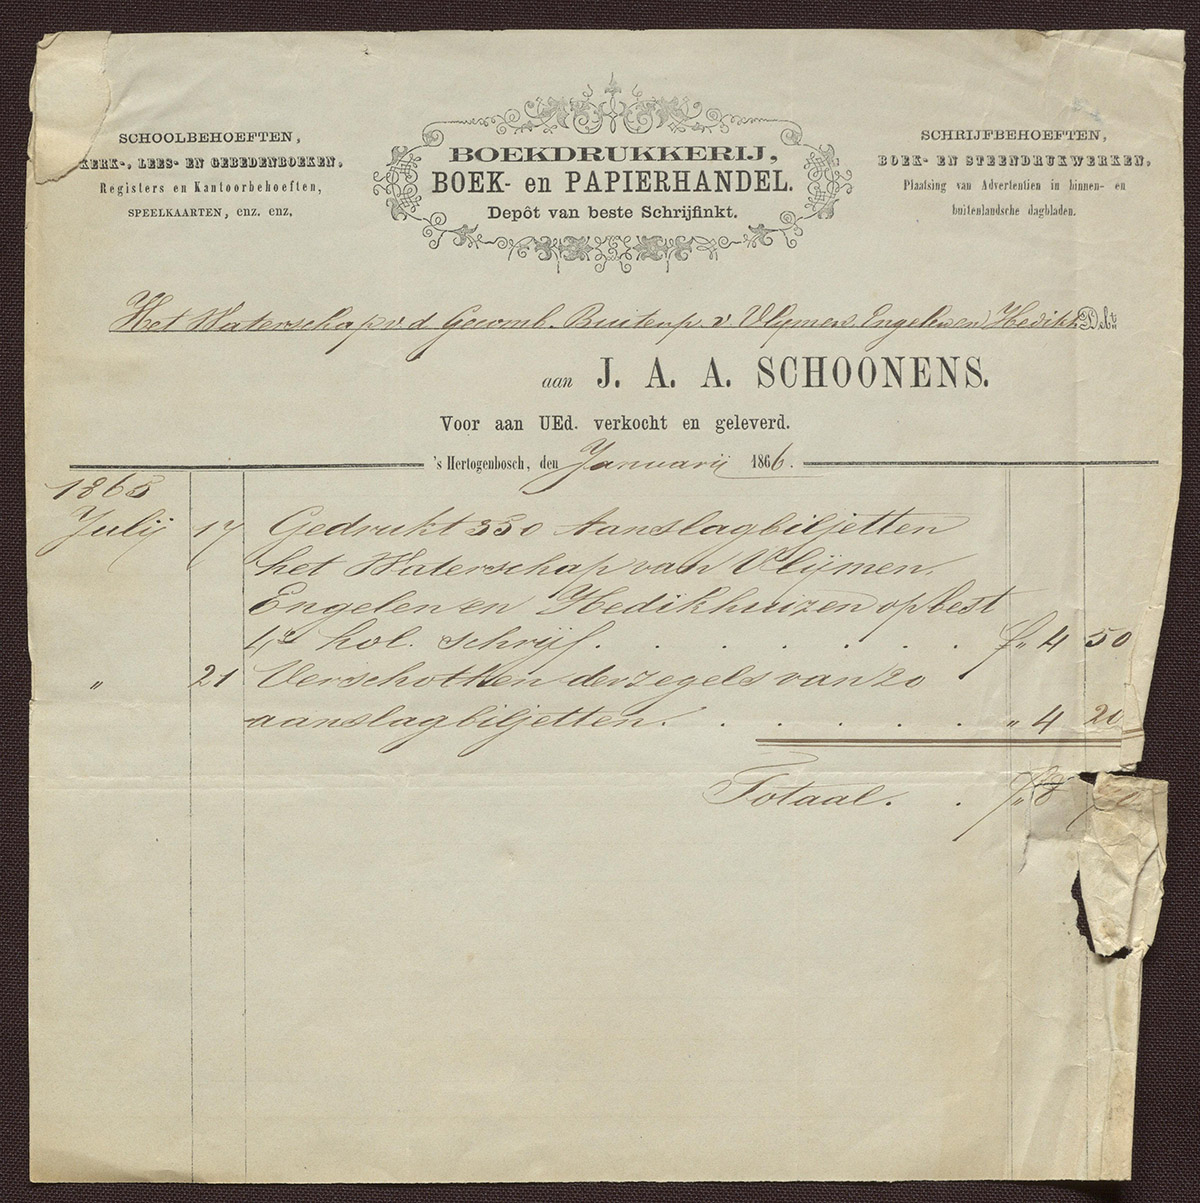 SCHOOLBEHOEFTEN,
KERK-, LEES- EN GEBEDENBOEKEN,
Registers en Kantoorbehoeften,
SPEELKAARTEN, enz. enz.
BOEKDRUKKERIJ,
BOEK- en PAPIERHANDEL.
Depôt van beste Schrijfinkt.
SCHRIJFBEHOEFTEN,
BOEK- EN STEENDRUKWERKEN,
Plaatsing van Advertentien in binnen- en
buitenlandsche dagbladen.
Het Waterschap v. d. Gecomb. Buitenp. v Vlijmen Engelen en Hedikh. Debt
aan J. A. A. SCHOONENS.
Voor aan UEd. verkocht en geleverd.
's Hertogenbosch, den Januarij 1866.
1865
Julij 17 Gedrukt 350 Aanslagbiljetten
het Waterschap van Vlijmen,
Engelen en Hedikhuizen op best
hol. schrijf. . . . . . f„ 4 50
„ 21 Verschotten der zegels van 20
aanslagbiljetten. . . . . „ 4 20
Totaal. . f„ 8 70